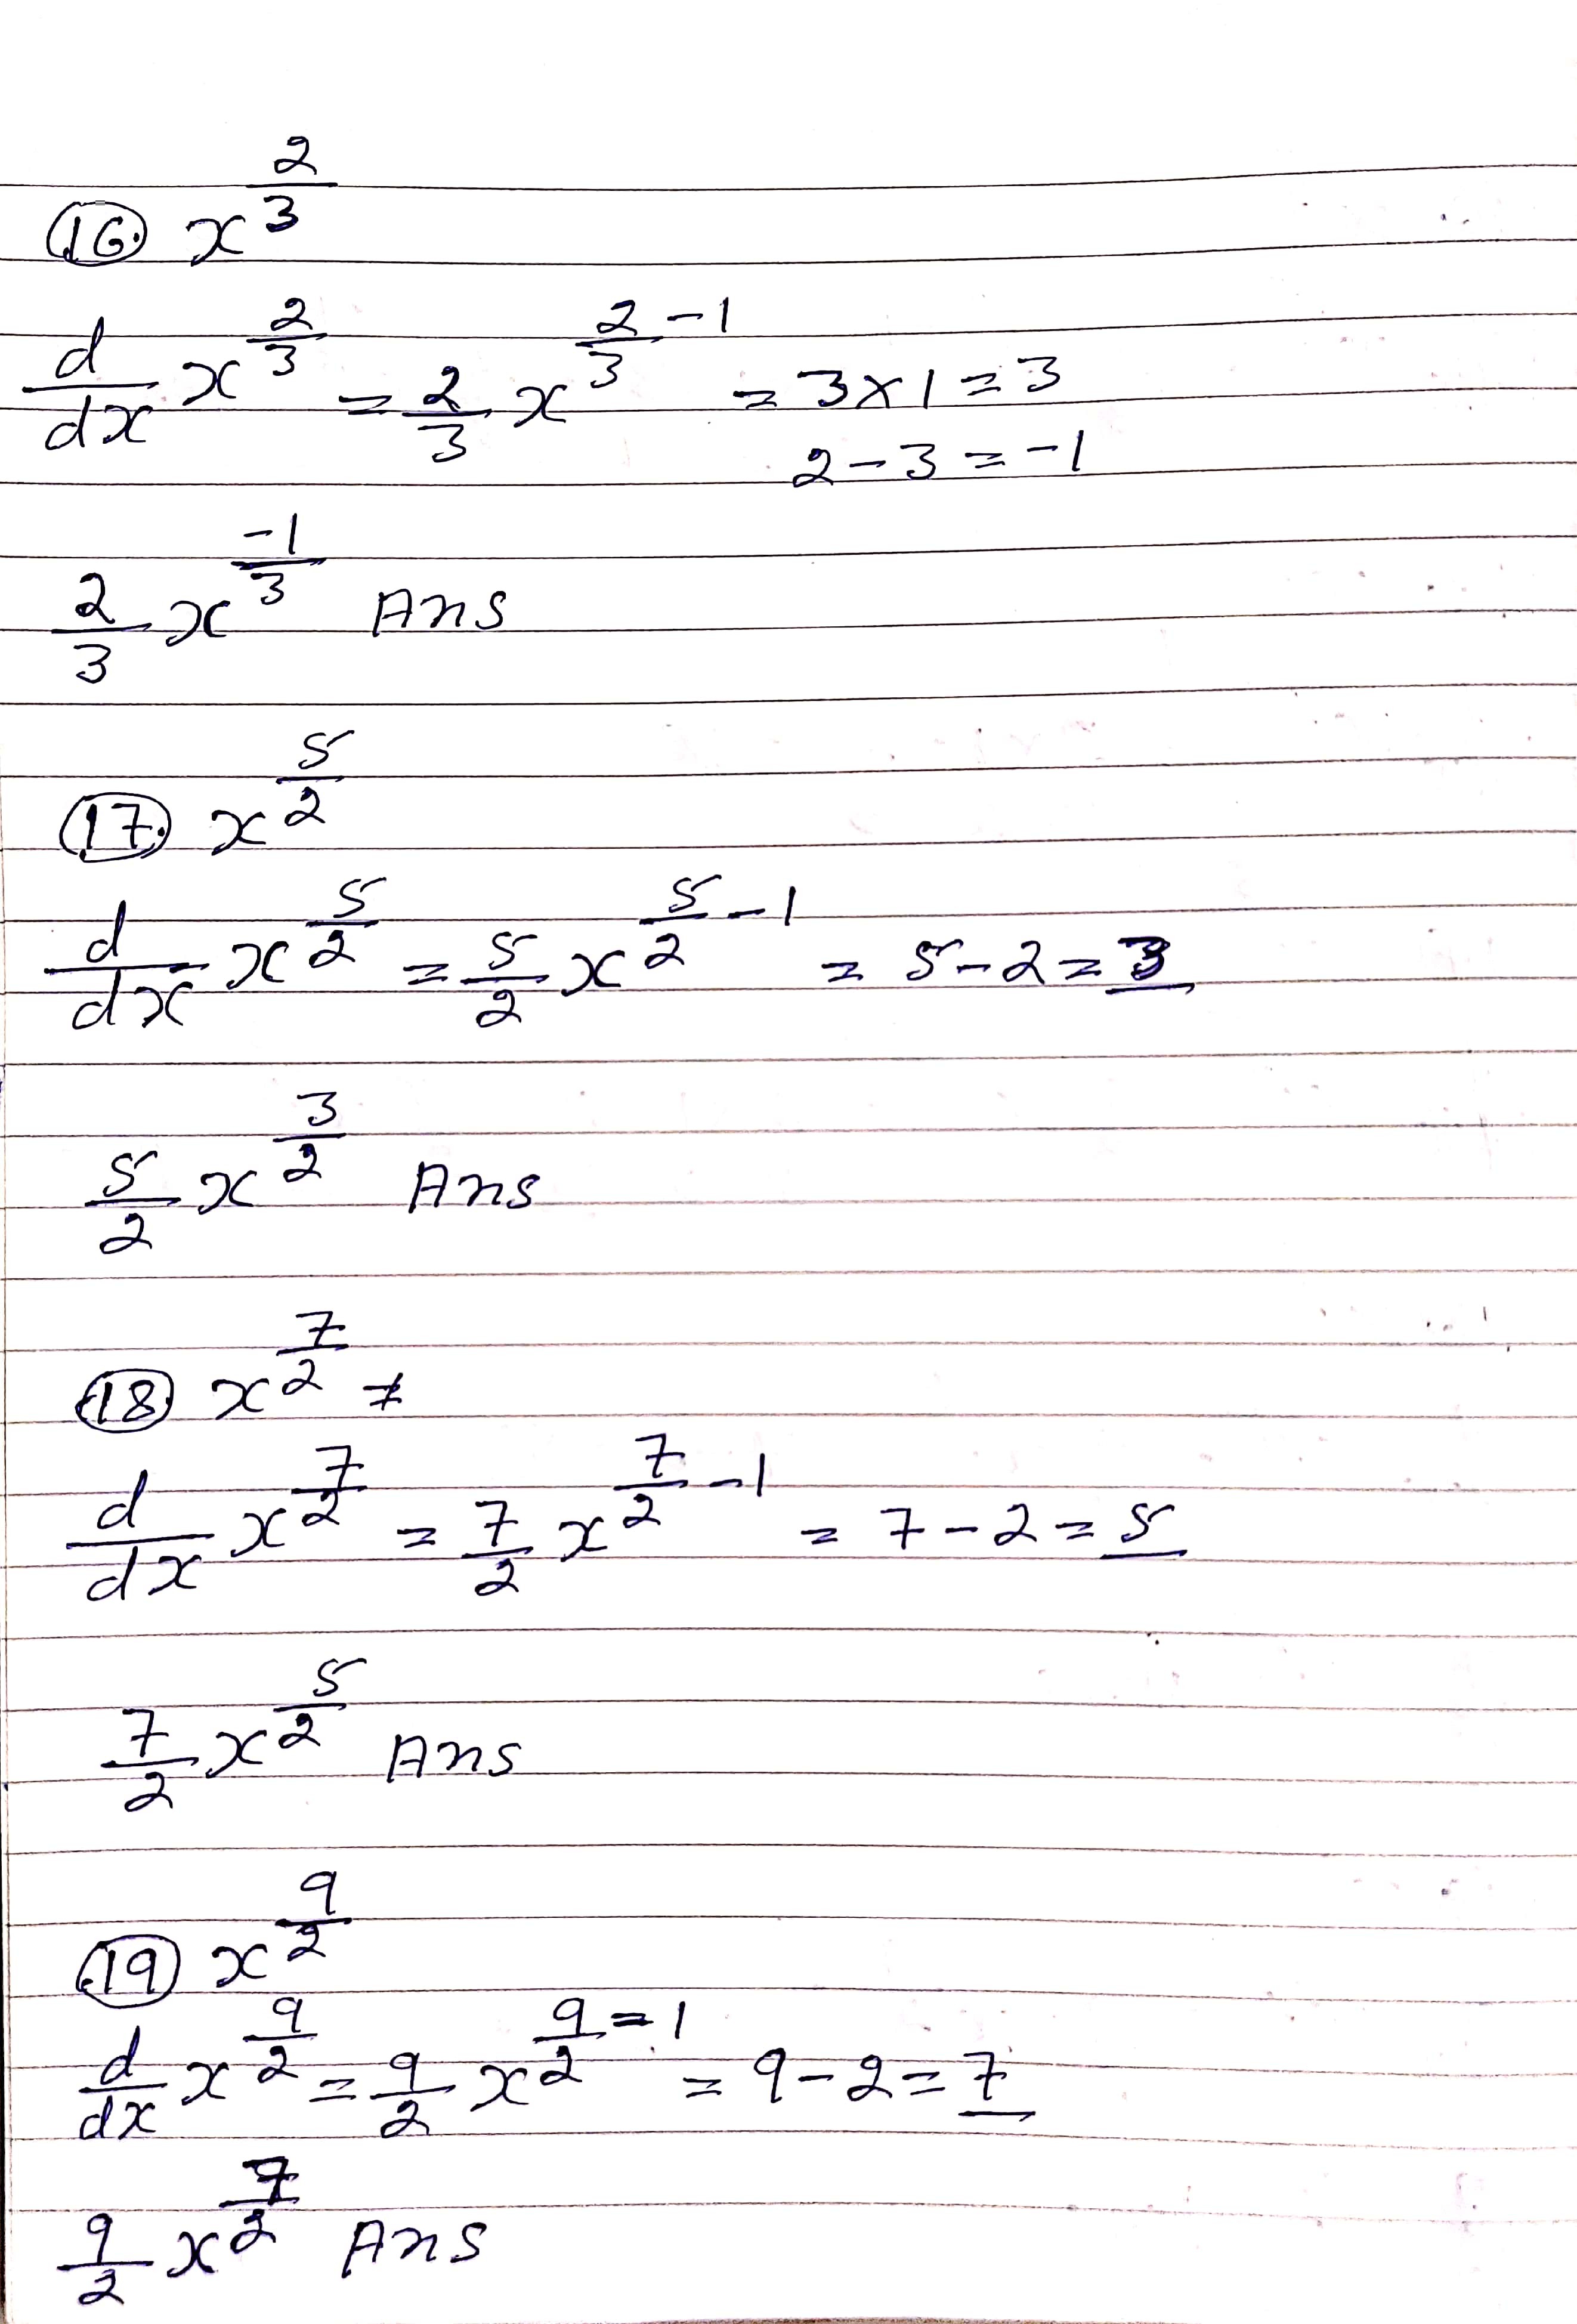 16. x^(2/3)
d/dx x^(2/3) = 2/3 x^(2/3 - 1) = 3 x 1 = 3
2 - 3 = -1
2/3 x^(-1/3) Ans
17. x^(5/2)
d/dx x^(5/2) = 5/2 x^(5/2 - 1) = 5 - 2 = 3
5/2 x^(3/2) Ans
18 x^(7/2)
d/dx x^(7/2) = 7/2 x^(7/2 - 1) = 7 - 2 = 5
7/2 x^(5/2) Ans
19 x^(9/2)
d/dx x^(9/2) = 9/2 x^(9/2 = 1) = 9 - 2 = 7
9/2 x^(7/2) Ans